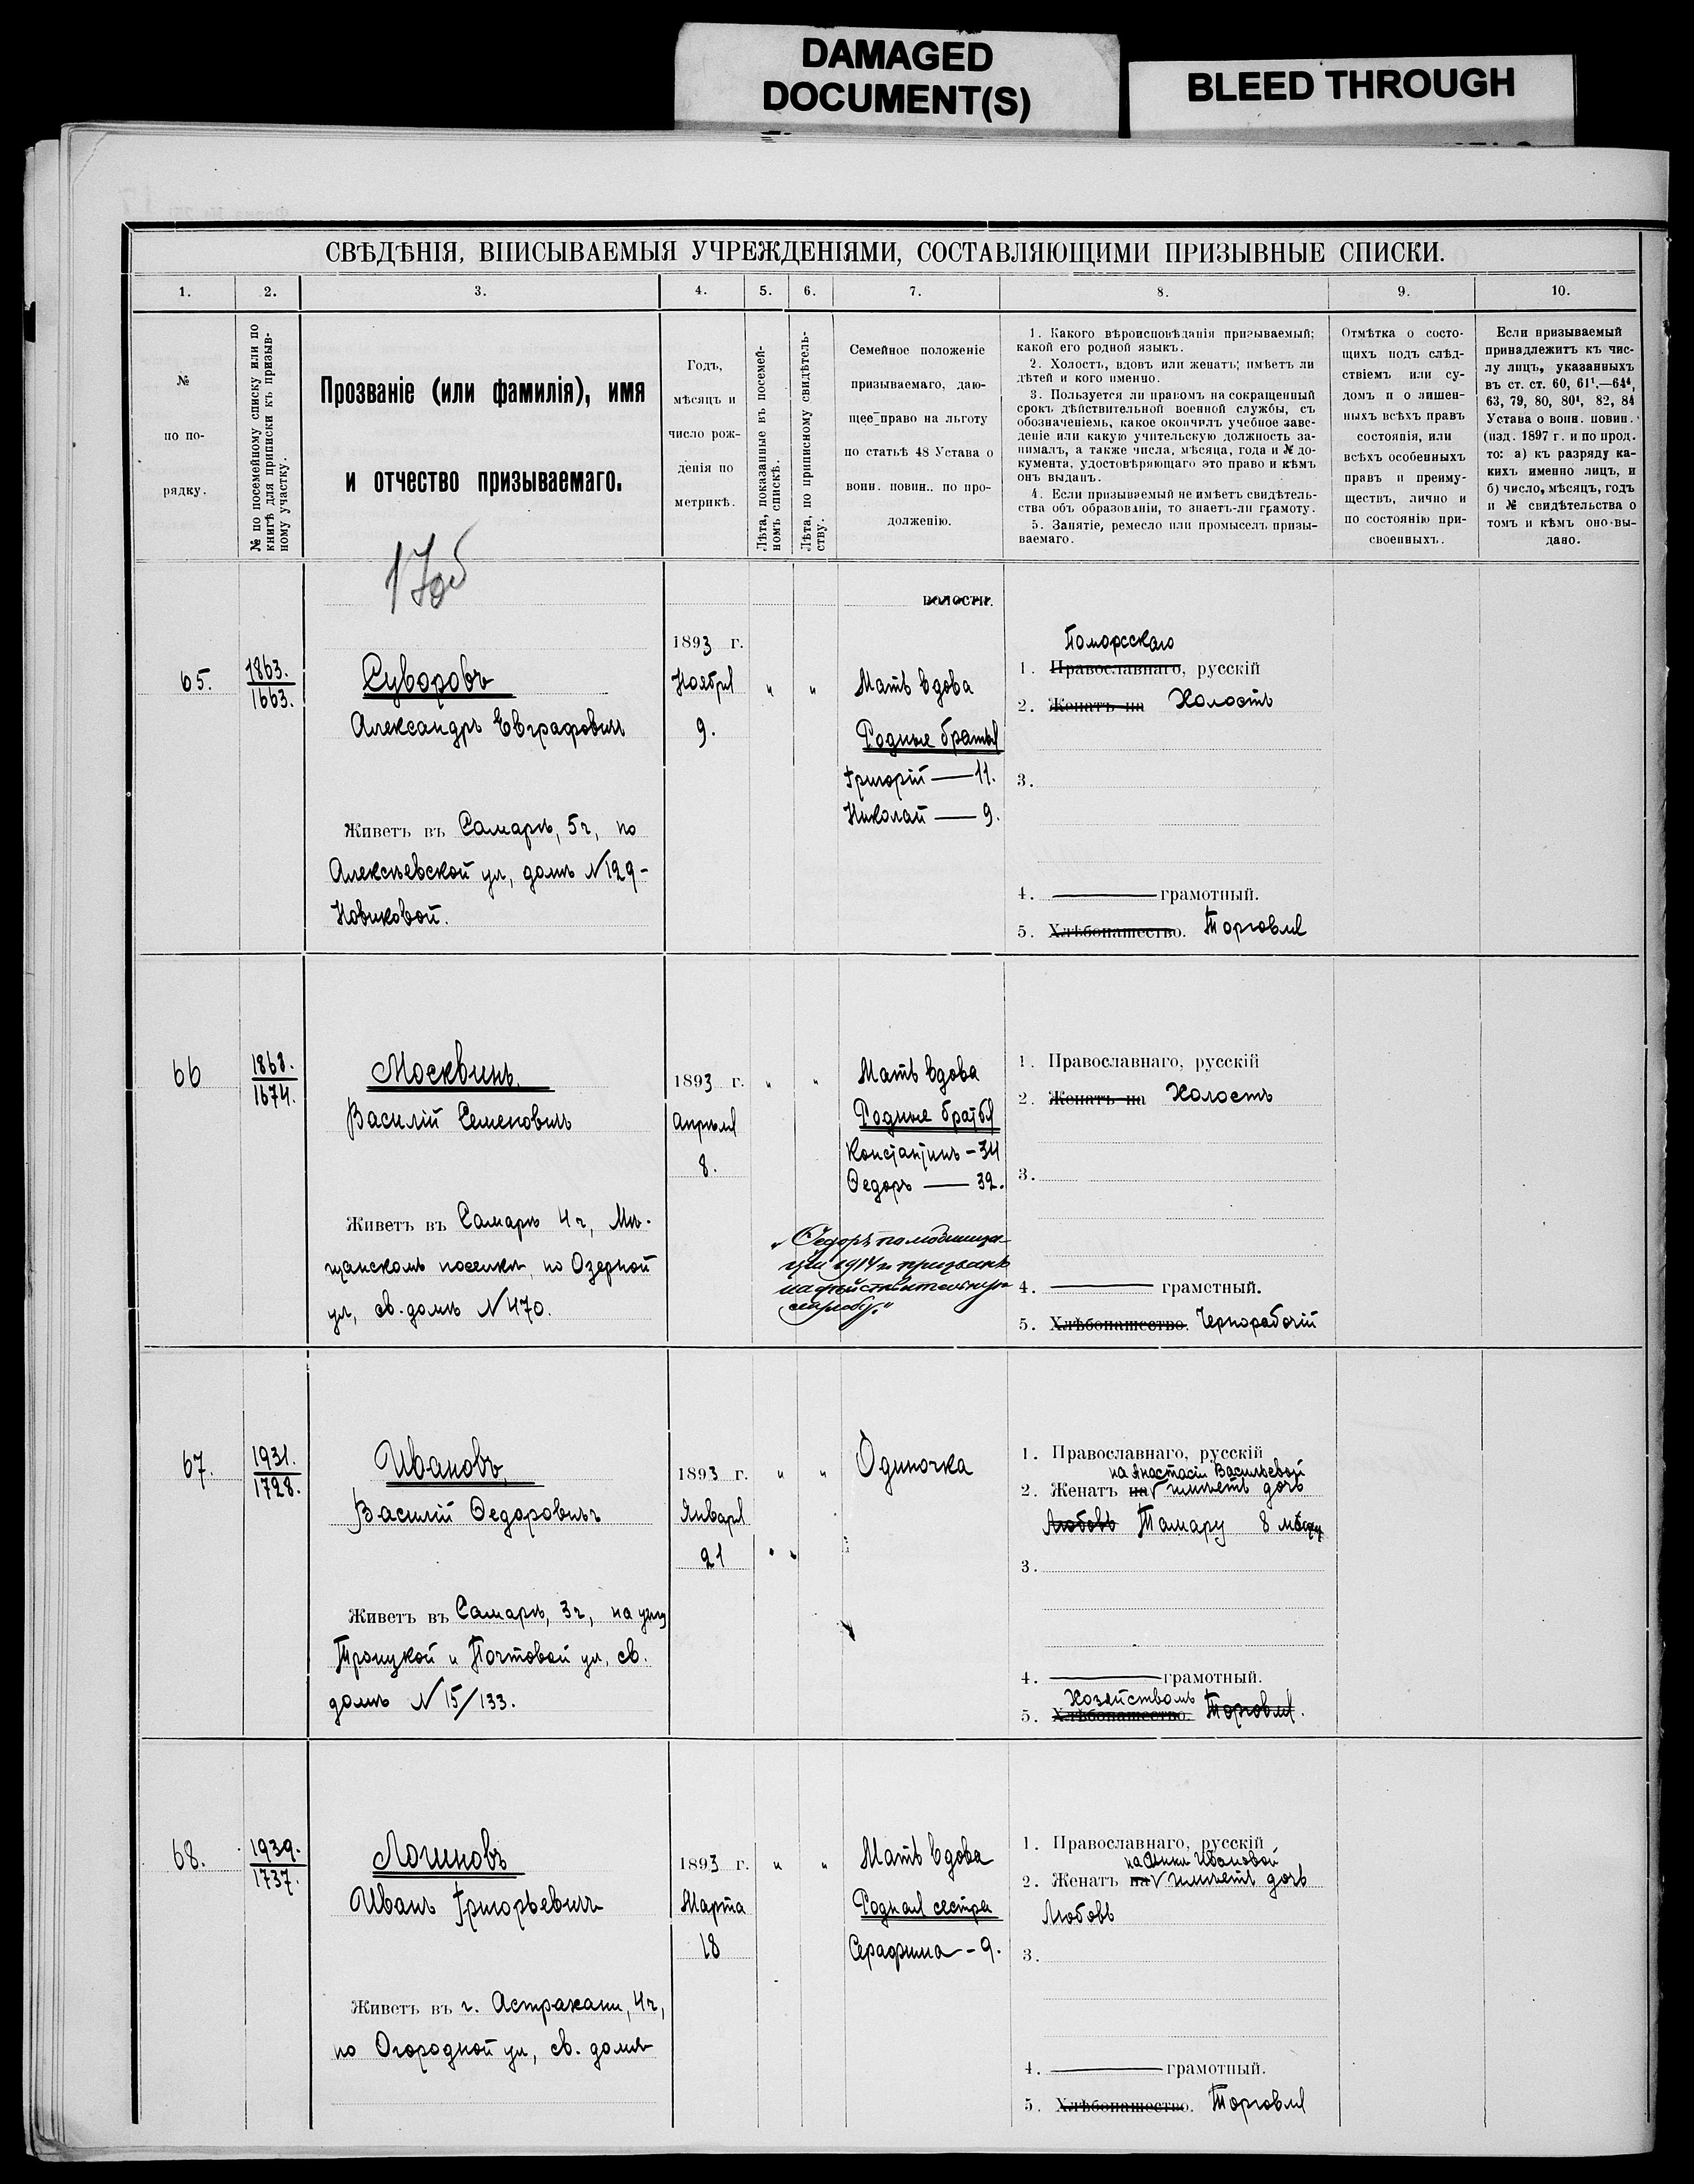 DAMAGED
DOCUMENT(S)
BLEED THROUGH
СВѢДѢНІЯ, ВПИСЫВАЕМЫЯ УЧРЕЖДЕНІЯМИ, СОСТАВЛЯЮЩИМИ ПРИЗЫВНЫЕ СПИСКИ.
1. 2. 3. 4. 5. 6. 7. 8. 9. 10.
№
по по-
рядку.
№ по посемейному списку или по
книгѣ для приписки къ призыв-
ному участку.
Прозваніе (или фамилія), имя
и отчество призываемаго.
Годъ,
мѣсяцъ и
число рож-
денія по
метрикѣ.
Лѣта, показанные въ посемей-
номъ спискѣ.
Лѣта, по приписному свидѣтель-
ству.
Семейное положеніе
призываемаго, даю-
щее право на льготу
по статьѣ 48 Устава о
воин. повин.. по про-
долженію.
1. Какого вѣроисповѣданія призываемый;
какой его родной языкъ.
2. Холостъ, вдовъ или женатъ; имѣетъ ли
дѣтей и кого именно.
3. Пользуется ли правомъ на сокращенный
срокъ дѣйствительной военной службы, съ
обозначеніемъ, какое окончилъ учебное заве-
деніе или какую учительскую должность за-
нималъ, а также числа, мѣсяца, года и № до-
кумента, удостовѣряющаго это право и кѣмъ
онъ выданъ.
4. Если призываемый не имѣетъ свидѣтель-
ства объ образованіи, то знаетъ-ли грамоту.
5. Занятіе, ремесло или промыселъ призы-
ваемаго.
Отмѣтка о состо-
щихъ подъ слѣд-
ствіемъ или су-
домъ и о лишен-
ныхъ всѣхъ правъ
состоянія, или
всѣхъ особенныхъ
правъ и преиму-
ществъ, лично и
по состоянію при-
своенныхъ.
Если призываемый
принадлежитъ къ чис-
лу лицъ, указанныхъ
въ ст. ст. 60, 61¹.—64⁴,
63, 79, 80, 80¹, 82, 84
Устава о воин. повин.
(изд. 1897 г. и по прод.
то: а) къ разряду ка-
кихъ именно лицъ, и
б) число, мѣсяцъ, годъ
и № свидѣтельства о
томъ и кѣмъ оно вы-
дано.
17об
волости.
65.
1863.
1663.
Суворовъ
Александръ Евграфовичъ
Живетъ въ Самарѣ, 5ч, по
Алексѣевской ул, домъ №129-
Новиковой.
1893 г.
Ноября
9.
" "
Мать вдова
Родные братья
Григорій — 11.
Николай — 9.
Поморскаго
1. Православнаго, русскій
2. Женатъ на Холостъ
3.
4. грамотный.
5. Хлѣбопашество. Торговля
66
1868.
1674.
Москвинъ.
Василій Семеновичъ
Живетъ въ Самарѣ 4ч, Мѣ-
щанскомъ поселкѣ, по Озерной
ул, св. домъ №470.
1893 г.
Апрѣля
8.
" "
Мать вдова
Родные братья
Константинъ - 34
Ѳедоръ — 32.
„Ѳедоръ по мобилиза-
ціи 1914 г. призванъ
на дѣйствительную
службу."
1. Православнаго, русскій
2. Женатъ на Холостъ
3.
4. грамотный.
5. Хлѣбопашество. Чернорабочій
67.
1931.
1728.
Ивановъ,
Василій Ѳедоровичъ
Живетъ въ Самарѣ, 3ч, на углу
Троицкой и Почтовой ул, св.
домъ № 15/133.
1893 г.
Января
21
" "
Одиночка
1. Православнаго, русскій
на Анастасіи Васильевой
2. Женатъ на имѣетъ дочь
Любовь Тамару 8 мѣсяц
3.
4. грамотный.
Хозяйствомъ
5. Хлѣбопашество. Торговля.
68.
1939.
1737.
Логиновъ
Иванъ Григорьевичъ
Живетъ въ г. Астрахани, 4ч,
по Огородной ул, св. домъ
1893 г.
Марта
18
" "
Мать вдова
Родная сестра
Серафима - 9.
1. Православнаго, русскій
на Аннѣ Ивановой
2. Женатъ на имѣетъ дочь
Любовь
3.
4. грамотный.
5. Хлѣбопашество. Торговля